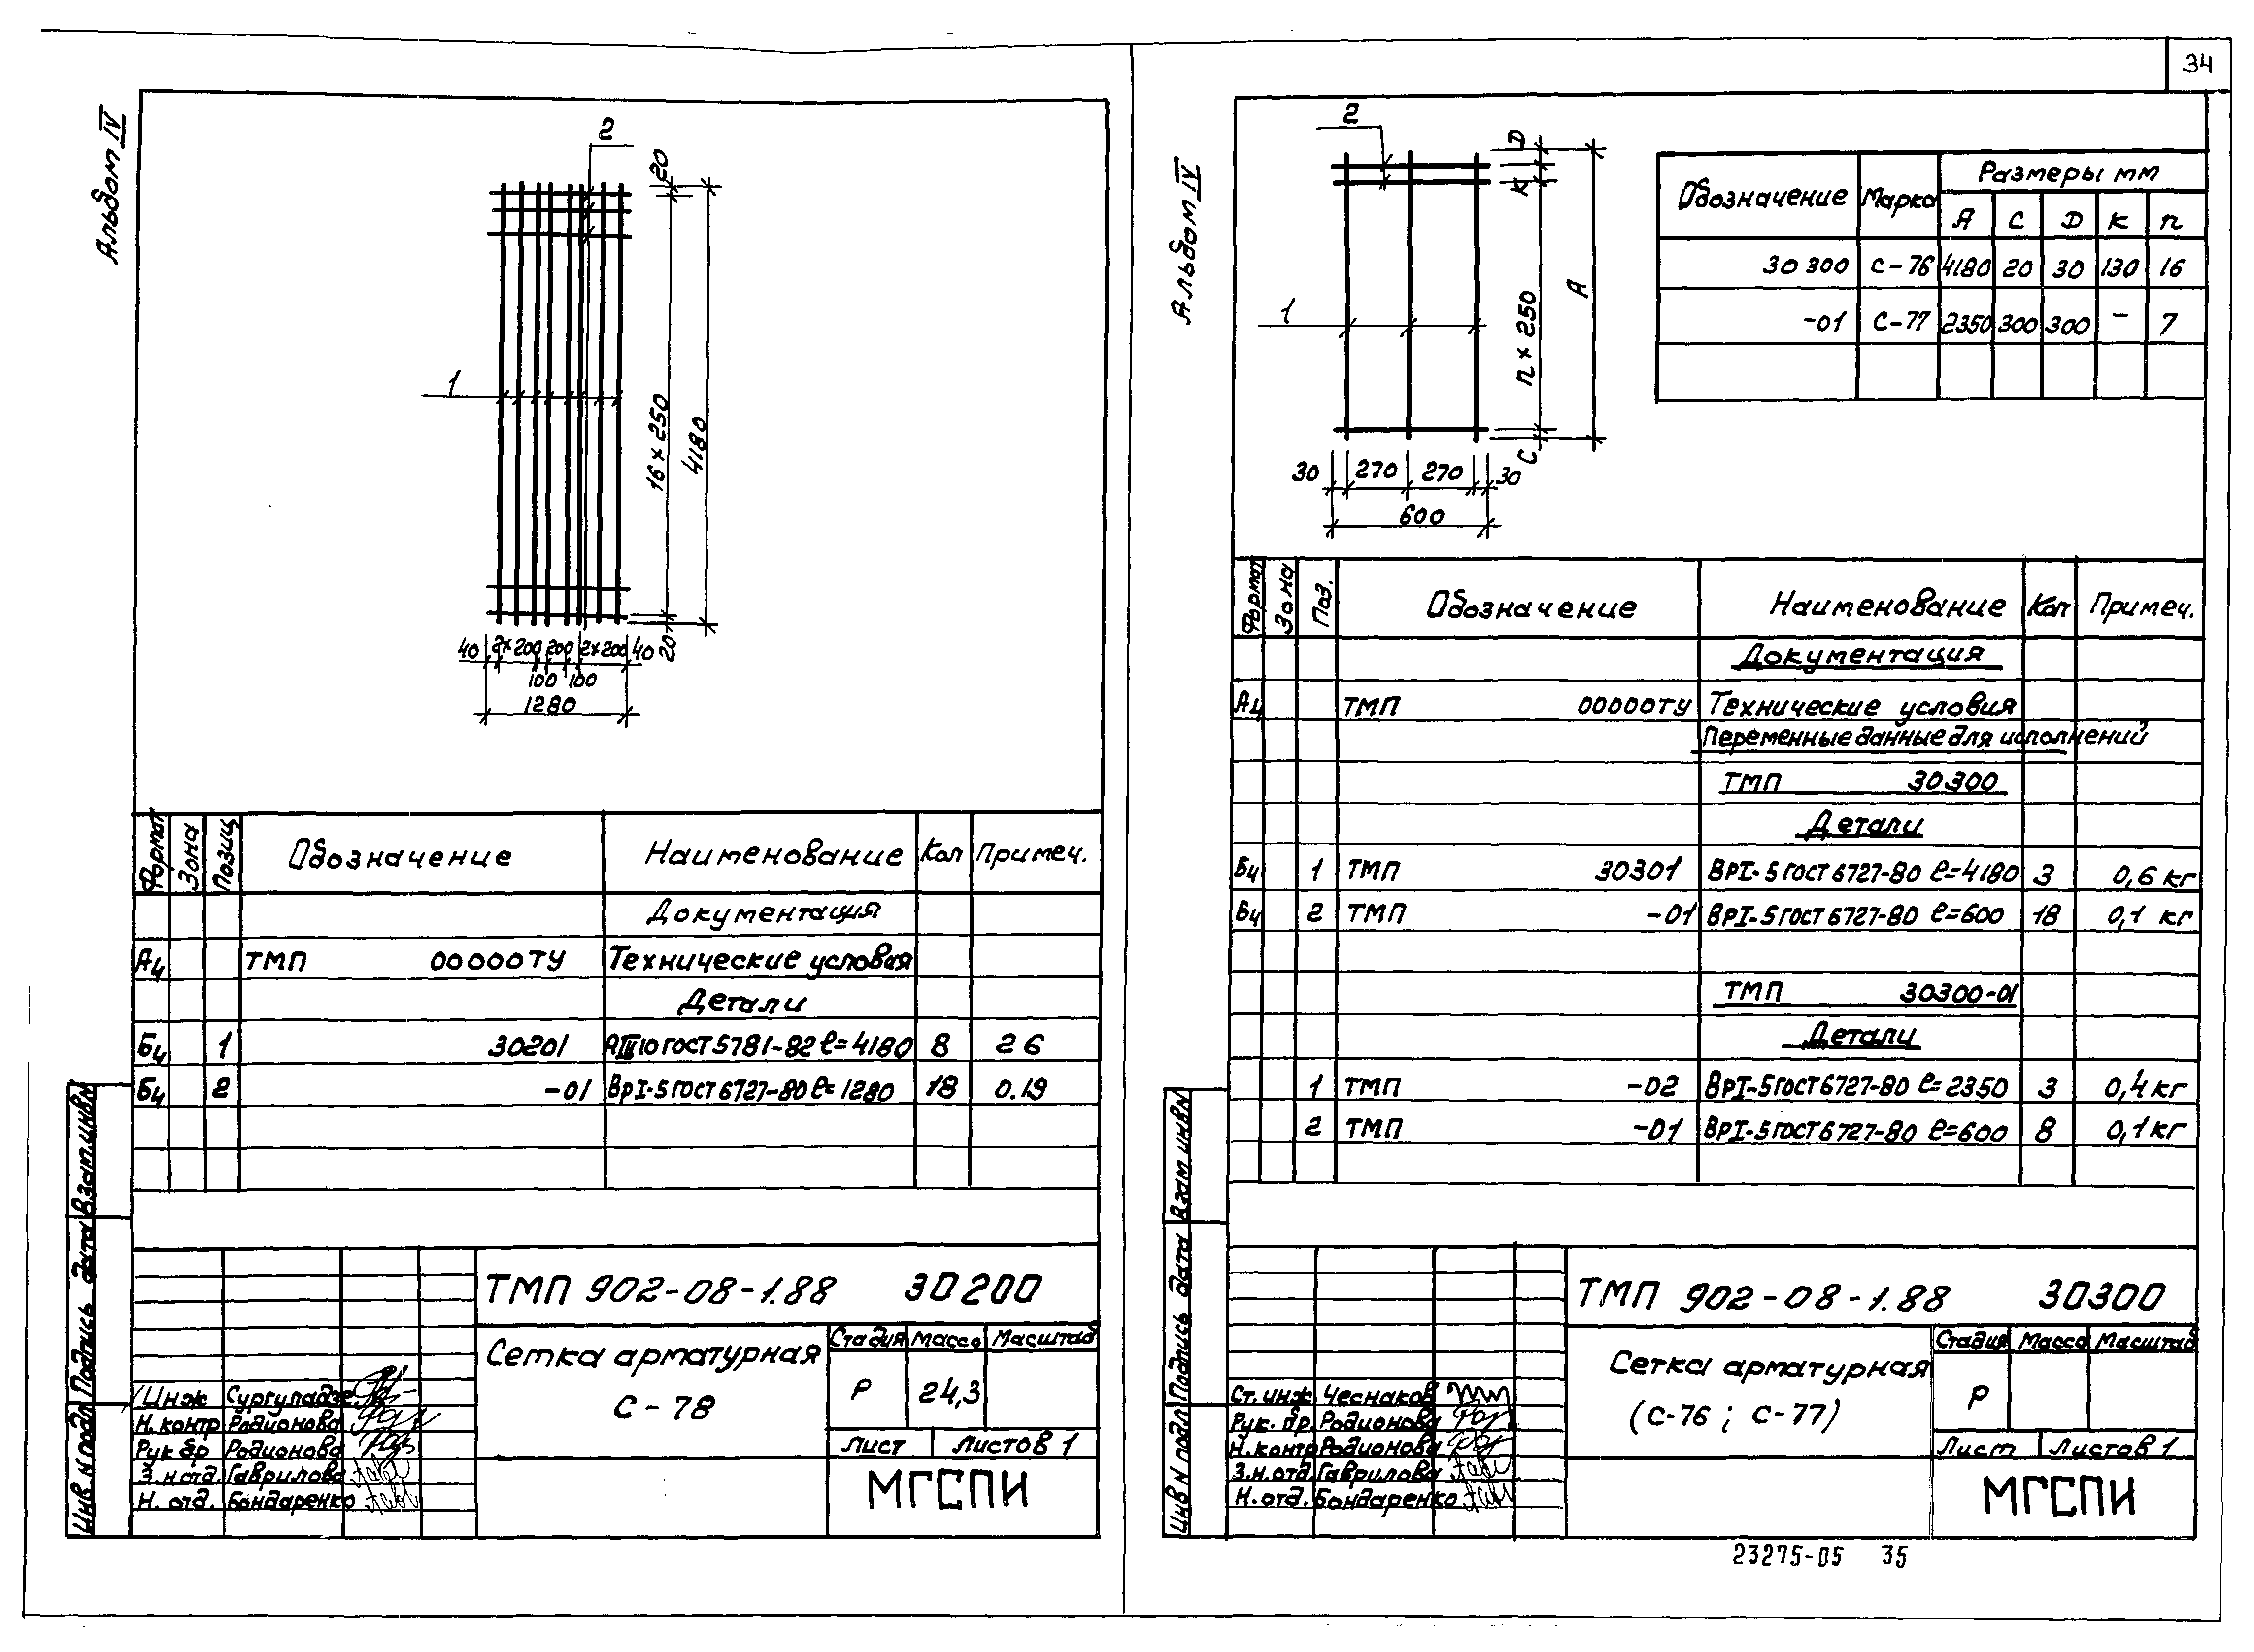 34
Альбом IV
2
20
1
16 × 250
4180
40 2×200 200 2×200 40 20
100 100
1280
Формат Зона Позиц Обозначение Наименование Кол Примеч.
Документация
А4 ТМП 00000ТУ Технические условия
Детали
Б4 1 30201 АIII10 ГОСТ 5781-82 ℓ=4180 8 2 6
Б4 2 -01 ВрI-5 ГОСТ 6727-80 ℓ=1280 18 0.19
Взам.инв№
Подпись дата
Инв N подл
ТМП 902-08-1.88 30200
Сетка арматурная
С-78
Стадия Масса Масштаб
Р 24,3
Лист Листов 1
МГСПИ
Инж Сургуладзе
Н.контр Родионова
Рук бр Родионова
З.н отд. Гаврилова
Н. отд. Бондаренко
Альбом IV
2
D
К
1
n × 250
А
С
30 270 270 30
600
Обозначение Марка Размеры мм
А С D К n
30300 С-76 4180 20 30 130 16
-01 С-77 2350 300 300 – 7
Формат Зона Поз. Обозначение Наименование Кол Примеч.
Документация
А4 ТМП 00000ТУ Технические условия
Переменные данные для исполнений
ТМП 30300
Детали
Б4 1 ТМП 30301 ВРI-5 ГОСТ 6727-80 ℓ=4180 3 0,6 кг
Б4 2 ТМП -01 ВРI-5 ГОСТ 6727-80 ℓ=600 18 0,1 кг
ТМП 30300-01
Детали
1 ТМП -02 ВРI-5 ГОСТ 6727-80 ℓ=2350 3 0,4 кг
2 ТМП -01 ВРI-5 ГОСТ 6727-80 ℓ=600 8 0,1 кг
Взам инв№
Подпись дата
Инв N подл
ТМП 902-08-1.88 30300
Сетка арматурная
(С-76; С-77)
Стадия Масса Масштаб
Р
Лист Листов 1
МГСПИ
Ст.инж Чеснаков
Рук. бр. Родионова
Н.контр Родионова
З.н.отд Гаврилова
Н.отд. Бондаренко
23275-05 35